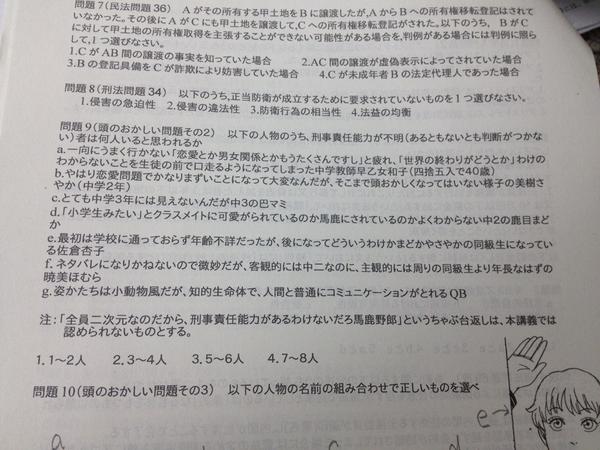 問題7(民法問題36) Aがその所有する甲土地をBに譲渡したが,AからBへの所有権移転登記はされて
いなかった。その後にAがCにも甲土地を譲渡して,Cへの所有権移転登記がされた。以下のうち, BがC
に対して甲土地の所有権取得を主張することができない可能性がある場合を,判例がある場合には判例に照ら
して,1つ選びなさい。
1.CがAB間の譲渡の事実を知っていた場合 2.AC間の譲渡が虚偽表示によってされていた場合
3.Bの登記具備をCが詐欺により妨害していた場合 4.Cが未成年者Bの法定代理人であった場合
問題8(刑法問題34) 以下のうち,正当防衛が成立するために要求されていないものを1つ選びなさい。
1.侵害の急迫性 2.侵害の違法性 3.防衛行為の相当性 4.法益の均衡
問題9(頭のおかしい問題その2) 以下の人物のうち、刑事責任能力が不明(あるともないとも判断がつかな
い)者は何人いると思われるか
a.一向にうまく行かない「恋愛とか男女関係とかもうたくさんですし」と疲れ、「世界の終わりがどうとか」わけの
わからないことを生徒の前で口走るようになってしまった中学教師早乙女和子(四捨五入で40歳)
b.やはり恋愛問題でかなりまずいことになって大変なんだが、そこまで頭おかしくなってはいない様子の美樹さ
やか(中学2年)
c.とても中学3年には見えないんだが中3の巴マミ
d.「小学生みたい」とクラスメイトに可愛がられているのか馬鹿にされているのかよくわからない中2の鹿目まど
か
e.最初は学校に通っておらず年齢不詳だったが、後になってどういうわけかまどかやさやかの同級生になってい
る佐倉杏子
f.ネタバレになりかねないので微妙だが、客観的には中二なのに、主観的には周りの同級生より年長なはずの
暁美ほむら
g.姿かたちは小動物風だが、知的生命体で、人間と普通にコミュニケーションがとれるQB
注:「全員二次元なのだから、刑事責任能力があるわけないだろ馬鹿野郎」というちゃぶ台返しは、本講義では
認められないものとする。
1.1〜2人 2.3〜4人 3.5〜6人 4.7〜8人
問題10(頭のおかしい問題その3) 以下の人物の名前の組み合わせで正しいものを選べ
e→
a